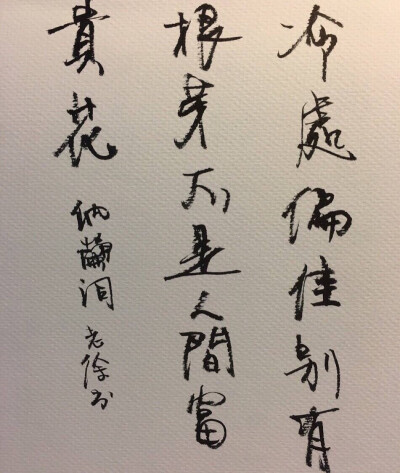 冷處偏佳別有
根芽不是人間富
貴花
納蘭詞 老徐书